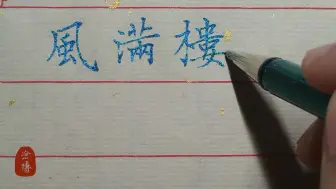 風滿樓